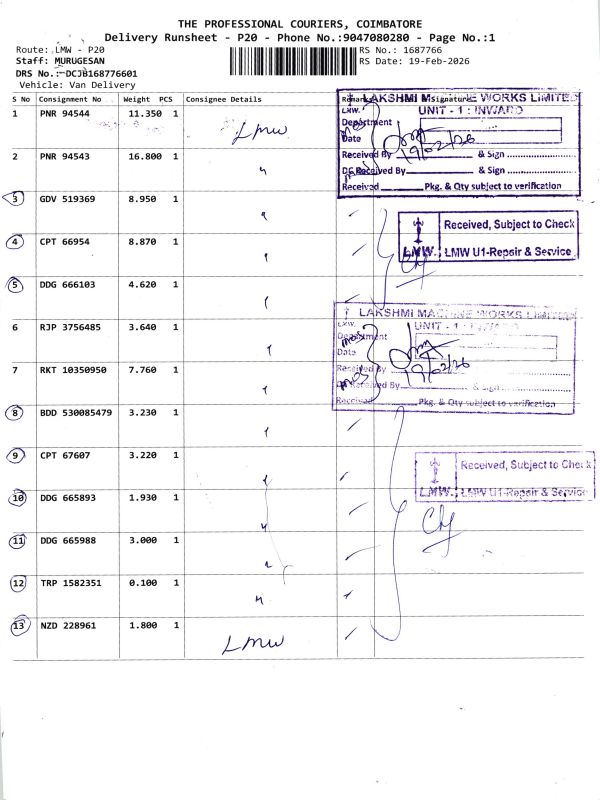 THE PROFESSIONAL COURIERS, COIMBATORE
Delivery Runsheet - P20 - Phone No.:9047080280 - Page No.:1
Route: LMW - P20
RS No.: 1687766
Staff: MURUGESAN
RS Date: 19-Feb-2026
DRS No.:-DCJB168776601
Vehicle: Van Delivery
S No Consignment No Weight PCS Consignee Details Remarks Signature
1 PNR 94544 11.350 1 LMW
2 PNR 94543 16.800 1 "
3 GDV 519369 8.950 1
4 CPT 66954 8.870 1
5 DDG 666103 4.620 1
6 RJP 3756485 3.640 1
7 RKT 10350950 7.760 1
8 BDD 530085479 3.230 1
9 CPT 67607 3.220 1
10 DDG 665893 1.930 1 "
11 DDG 665988 3.000 1
12 TRP 1582351 0.100 1 "
13 NZD 228961 1.800 1 LMW
LAKSHMI MACHINE WORKS LIMITED
UNIT - 1 : INWARD
LMW.
Department
Date 19/02/26
Received By & Sign
Received By & Sign
Received Pkg. & Qty subject to verification
Received, Subject to Check
LMW. LMW U1-Repair & Service
LAKSHMI MACHINE WORKS LIMITED
UNIT - 1 : INWARD
LMW.
Department
Date 19/02/26
Received By
Received By & Sign
Received Pkg. & Qty subject to verification
Received, Subject to Check
LMW. LMW U1-Repair & Service